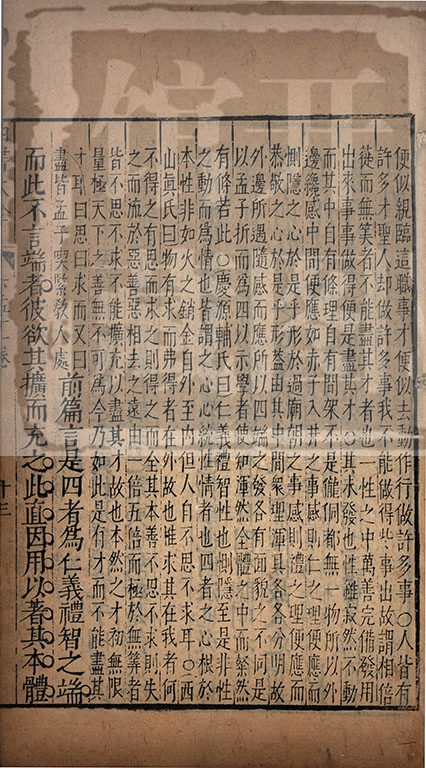 便似親臨這職事才便似去動作行做許多事○人皆有
許多才聖人却做許多事我不能做得些事出故謂相倍
蓰而無筭者不能盡其才者也一性之中萬善完備發用
出來事事做得便是盡其才○其未發也性雖寂然不動
而其中自有條理自有間架不是儱侗都無一物所以外
邊纔感中間便應如赤子入井之事感則仁之理便應而
惻隱之心於是乎形於過廟朝之事感則禮之理便應而
恭敬之心於是乎形蓋由其中間衆理渾具各各分明故
外邊所遇隨感而應所以四端之發各有面貌之不同是
以孟子折而爲四以示學者使知渾然全體之中而粲然
有條若此○慶源輔氏曰仁義禮智性也惻隱至是非性
之動而爲情也皆謂之心心統性情者也四者之心根於
本性非如火之銷金自外至内但人自不思不求耳○西
山眞氏曰物有求而弗得者在外故也惟求其在我者何
不得之有思而求之則得之而全其本善不思不求則失
之而流於惡善惡相去之遠由一倍五倍而極於無筭者
皆不思不求不能擴充以盡其才故也本然之才初無限
量極天下之善無不可爲今乃如此是有才而不能盡其
才耳曰思曰求而又曰
盡皆孟子喫緊教人處
前篇言是四者爲仁義禮智之端
而此不言端者彼欲其擴而充之此直因用以著其本體
十三